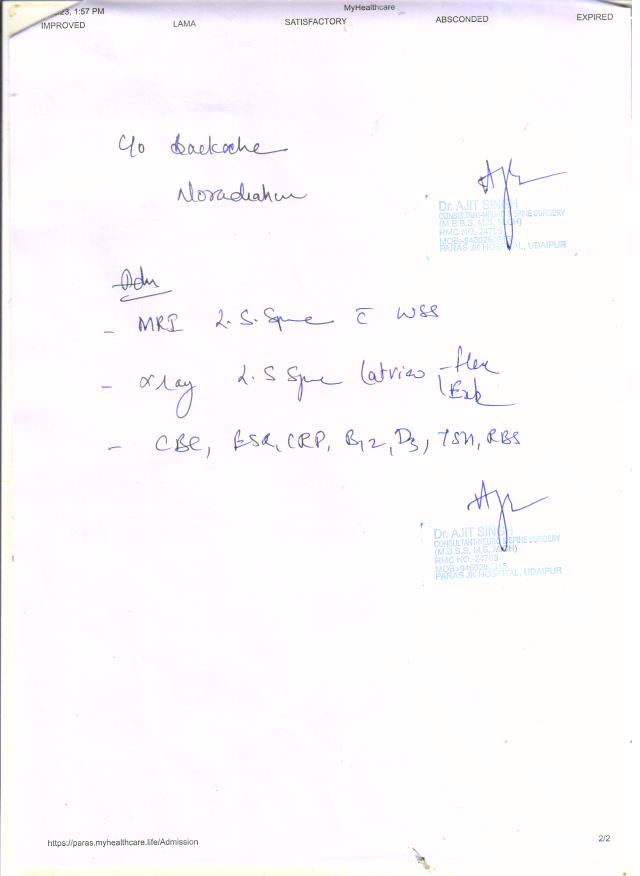 23, 1:57 PM MyHealthcare
IMPROVED LAMA SATISFACTORY ABSCONDED EXPIRED
C/o Backache
No radiation
Dr. AJIT SINGH
CONSULTANT-NEURO SPINE SURGERY
(M.B.B.S, M.S, M.CH)
RMC NO.-24705
PARAS JK HOSPITAL, UDAIPUR
Adv
- MRI L.S. Spine c̄ WSS
- Xray L.S Spine Lat view - flex
Ext
- CBC, ESR, CRP, B12, D3, TSH, RBS
Dr. AJIT SINGH
CONSULTANT-NEURO SPINE SURGERY
(M.B.B.S, M.S, M.CH)
RMC NO.-24705
PARAS JK HOSPITAL, UDAIPUR
https://paras.myhealthcare.life/Admission 2/2